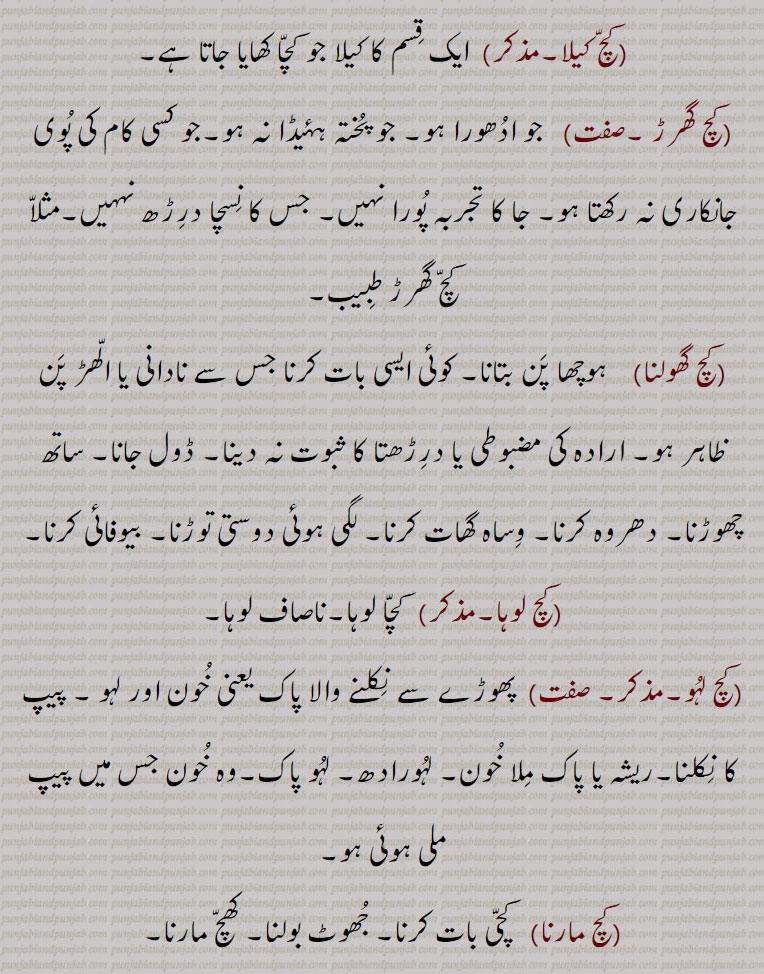 (کچّ کیلا۔مذکر) ایک قِسم کا کیلا جو کچّا کھایا جاتا ہے۔
(کچ گھرڑ ۔صفت) جو ادُھورا ہو۔ جو پُختہ ہئیڈا نہ ہو۔جو کسی کام کی پُوی
جانکاری نہ رکھتا ہو۔ جا کا تجربہ پُورا نہیں۔ جس کا نِسچا درِڑھ نہہیں۔مثلاّ
کچّ گھرڑ طِبیب۔
(کچ گھولنا) ہوچھا پَن بتانا۔ کوئی ایسی بات کرنا جس سے نادانی یا الھّڑ پَن
ظاہر ہو۔ ارادہ کی مضبوطی یا درِڑھتا کا ثبوت نہ دینا۔ ڈول جانا۔ ساتھ
چھوڑنا۔ دھروہ کرنا۔ وِساہ گھات کرنا۔ لگی ہوئی دوستی توڑنا۔ بیوفائی کرنا۔
(کچ لوہا۔مذکر) کچّا لوہا۔ناصاف لوہا۔
(کچ لہُو۔مذکر۔ صفت) پھوڑے سے نِکلنے والا پاک یعنی خُون اور لہو ۔ پیپ
کا نِکلنا۔ریشہ یا پاک مِلا خُون۔ لہُورادھ۔ لہُو پاک۔وہ خُون جس میں پیپ
ملی ہوئی ہو۔
(کچ مارنا) کچّی بات کرنا۔ جُھوٹ بولنا۔ کھچّ مارنا۔